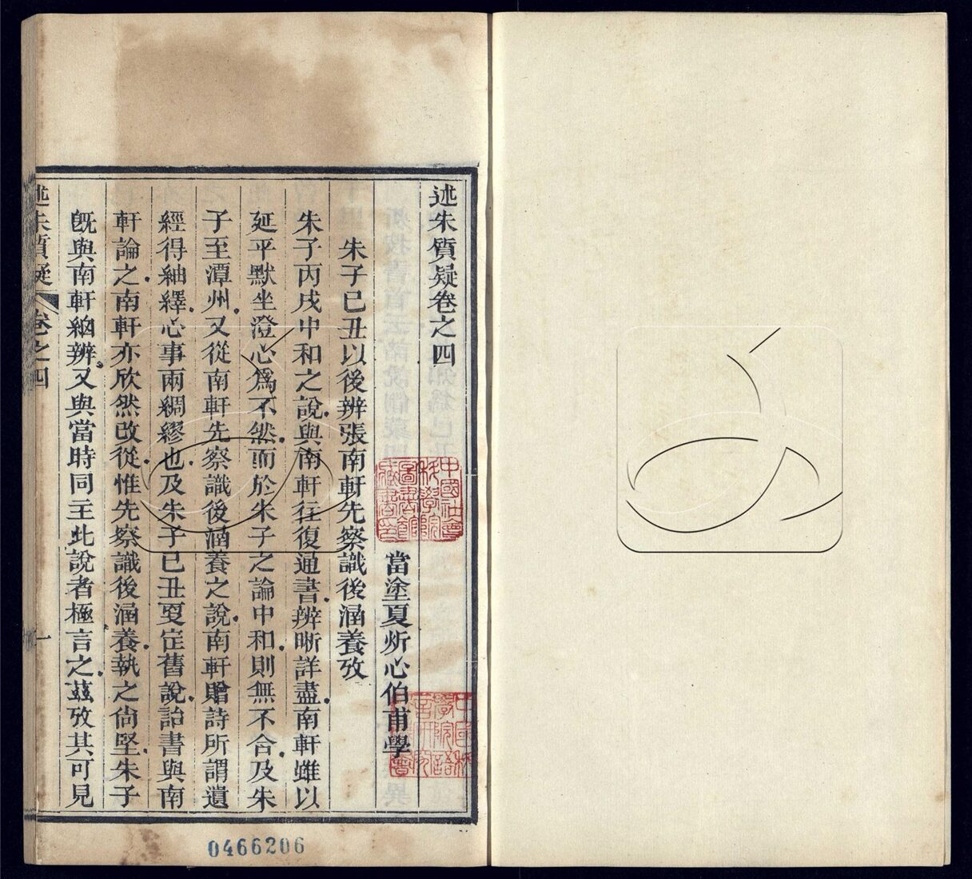 述朱質疑卷之四
當塗夏炘心伯甫學
朱子已丑以後辨張南軒先察識後涵養攷
朱子丙戌中和之說與南軒往復通書辨晰詳盡南軒雖以
延平默坐澄心爲不然而於朱子之論中和則無不合及朱
子至潭州又從南軒先察識後涵養之說南軒贈詩所謂遺
經得紬繹心事兩綢繆也及朱子已丑更定舊說詒書與南
軒論之南軒亦欣然改從惟先察識後涵養執之尙堅朱子
旣與南軒細辨又與當時同主此說者極言之茲攷其可見
述朱質疑 卷之四 一
中國社會科學院圖書館藏書章
0466206